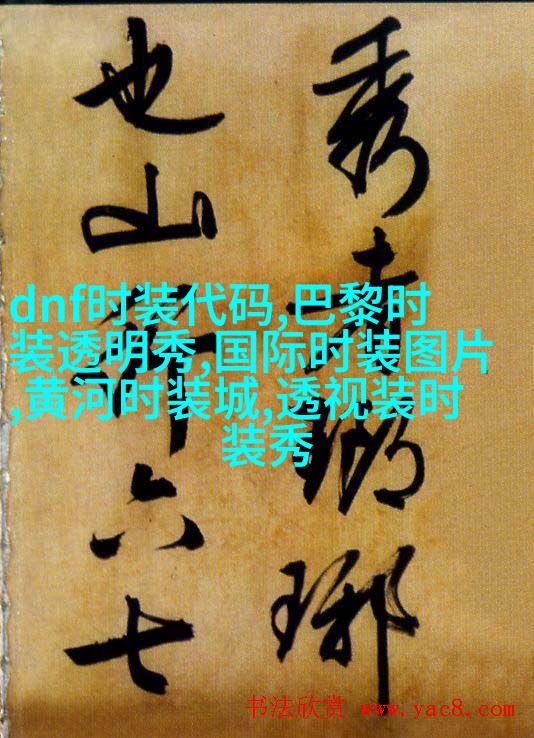 秀者琅琊
也山行六七
dnf时装代码,巴黎时
装透明秀,国际时装图片
,黄河时装城,透视装时
装秀
书法欣赏 www.yac8.com